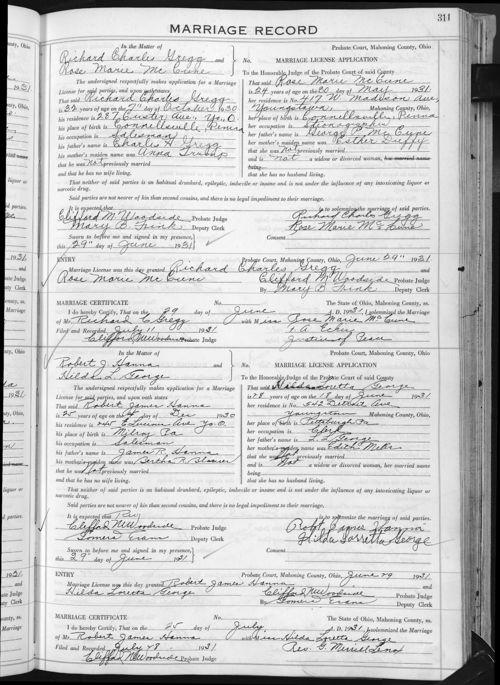 311
MARRIAGE RECORD
In the Matter of
Richard Charles Gregg and
Rose Marie McCune
The undersigned respectfully makes application for a Marriage
License for said parties, and upon oath states
That said Richard Charles Gregg
is 32 years of age on the 7th day of October 1930
his residence is 237 Custer Ave. Yo. O
his place of birth is Connellsville Penna
his occupation is Salesman
his father's name is Charles H Gregg
his mother's maiden name was Anna
that he was not previously married
and that he has no wife living.
No.
Probate Court, Mahoning County, Ohio
MARRIAGE LICENSE APPLICATION
To the Honorable Judge of the Probate Court of said County
That said Rose Marie McCune
is 24 years of age on the 20 day of May 1931
her residence is No. 417 W Madison Ave
Youngstown, Mahoning County, Ohio
her place of birth is Connellsville, Penna
her occupation is Stenographer
her father's name is George McCune
her mother's maiden name was Esther Duffy
that she was not previously married
and is not a widow or divorced woman, her married name
being
that she has no husband living.
That neither of said parties is an habitual drunkard, epileptic, imbecile or insane and is not under the influence of any intoxicating liquor or
narcotic drug.
Said parties are not nearer of kin than second cousins, and there is no legal impediment to their marriage.
It is expected that is to solemnize the marriage of said parties.
Clifford M. Woodside Probate Judge
Mary B. Fink Deputy Clerk
Richard Charles Gregg
Rose Marie McCune
Sworn to before me and signed in my presence,
this 29th day of June 1931
Consent
ENTRY
Probate Court, Mahoning County, Ohio, June 29th 1931
Marriage License was this day granted Richard Charles Gregg and
Rose Marie McCune
Clifford M Woodside Probate Judge
By Mary B. Fink Deputy Clerk
MARRIAGE CERTIFICATE
No.
The State of Ohio, Mahoning County, ss.
I do hereby Certify, That on the 29 day of June A. D. 1931, I solemnized the Marriage
of Mr. Richard C. Gregg with Miss Rose Marie McCune
Filed and Recorded July 11 1931
Clifford M Woodside Probate Judge
Justice of Peace
In the Matter of
Robert J. Hanna and
Hilda L. George
The undersigned respectfully makes application for a Marriage
License for said parties, and upon oath states
That said Robert James Hanna
is 25 years of age on the day of Dec 1930
his residence is Yo. O
his place of birth is Pa
his occupation is Salesman
his father's name is James R. Hanna
his mother's maiden name was Bertha
that he was not previously married
and that he has no wife living.
No.
Probate Court, Mahoning County, Ohio
MARRIAGE LICENSE APPLICATION
To the Honorable Judge of the Probate Court of said County
That said Hilda Loretta George
is 28 years of age on the 18 day of June 1931
her residence is No. 542 Detroit Ave
Youngstown Mahoning County, Ohio
her place of birth is Pittsburgh Pa
her occupation is Clerk
her father's name is George
her mother's maiden name was
that she was not previously married
and is not a widow or divorced woman, her married name
being
that she has no husband living.
That neither of said parties is an habitual drunkard, epileptic, imbecile or insane and is not under the influence of any intoxicating liquor or
narcotic drug.
Said parties are not nearer of kin than second cousins, and there is no legal impediment to their marriage.
It is expected that Rev. is to solemnize the marriage of said parties.
Clifford M Woodside Probate Judge
Evans Deputy Clerk
Robt James Hanna
Hilda Lorretta George
Sworn to before me and signed in my presence,
this 29 day of June 1931
Consent
ENTRY
Probate Court, Mahoning County, Ohio, June 29 1931
Marriage License was this day granted Robert James Hanna and
Hilda Loretta George
Clifford M Woodside Probate Judge
By Evans Deputy Clerk
MARRIAGE CERTIFICATE
No.
The State of Ohio, Mahoning County, ss.
I do hereby Certify, That on the 25 day of July A. D. 1931, I solemnized the Marriage
of Mr. Robert James Hanna with Miss Hilda Loretta George
Filed and Recorded July 28 1931
Clifford M Woodside Probate Judge
Rev. G. Merrill Lenox